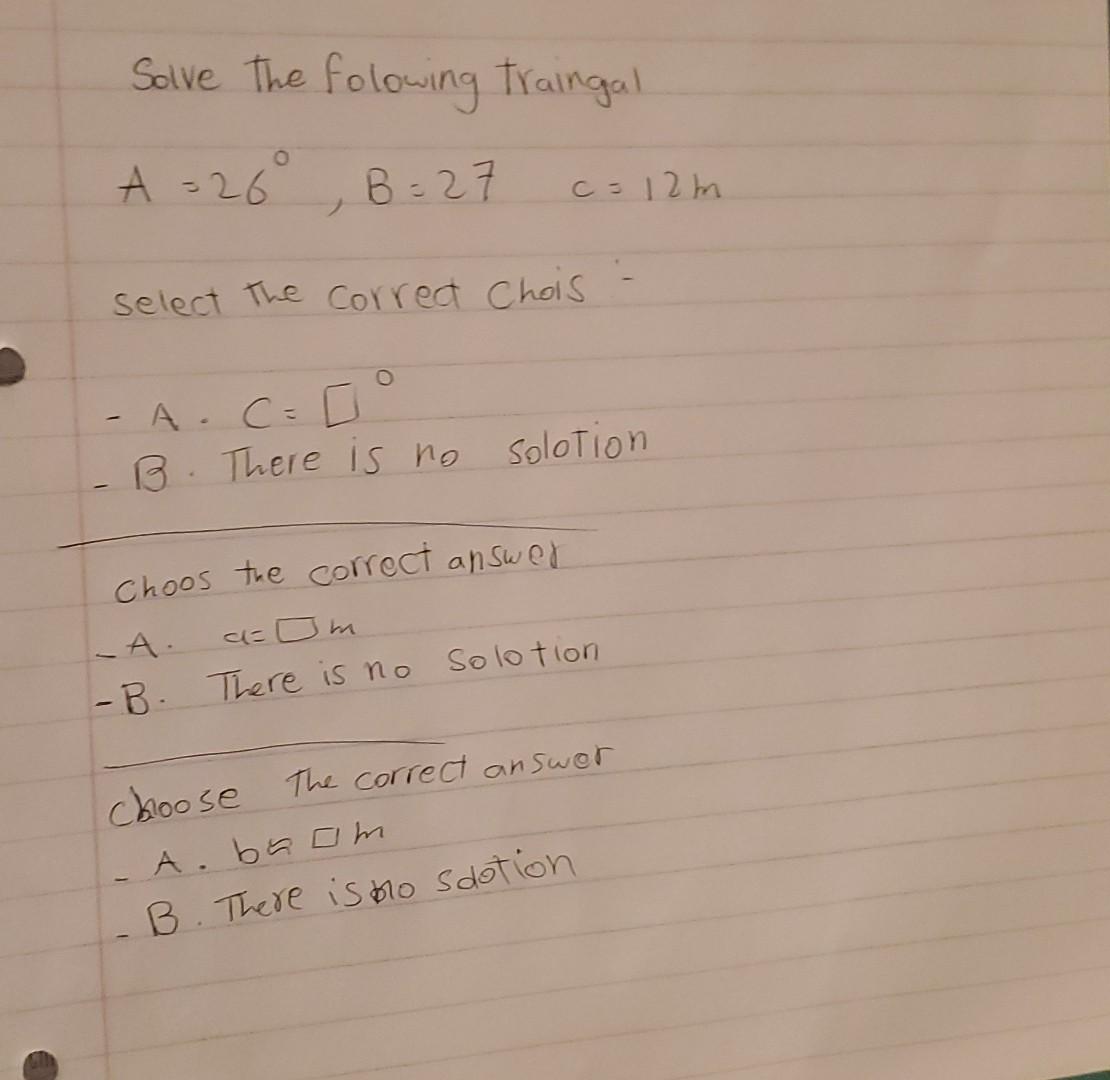 Solve The folowing Traingal
A = 26° , B = 27 c = 12m
select The correct chois :-
- A . C = □°
- B . There is no soloTion
choos the correct answer
- A . a = □ m
- B . There is no Solotion
choose The correct answer
- A . b ≈ □ m
- B . There is no Solotion